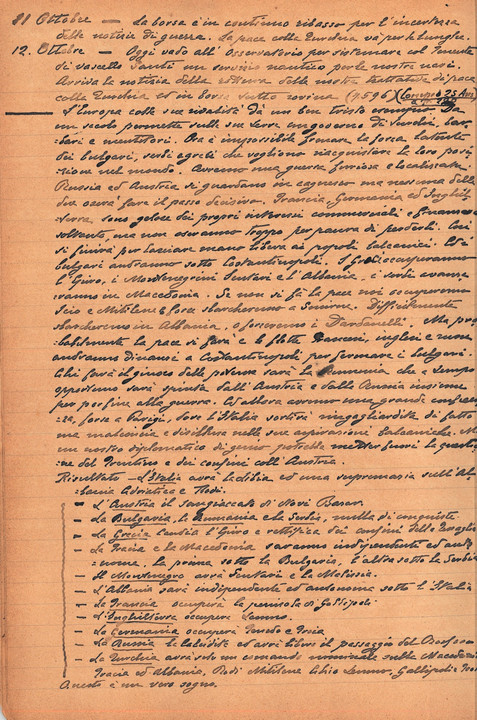 11 Ottobre — La borsa è in continuo ribasso per l'incertezza
delle notizie di guerra. La pace colla Turchia va per le lunghe.
12. Ottobre — Oggi vado all'Osservatorio per sistemare col Tenente
di vascello un servizio nautico per le nostre navi.
Arriva la notizia della rottura delle nostre trattative di pace
colla Turchia ed in borsa tutto rovina (9696)
L'Europa colle sue rivalità dà un ben triste esempio. Da
un secolo permette sulle sue terre un governo di Turchi, bar-
bari e mentitori. Ora è impossibile frenare la forza latente
dei bulgari, serbi e greci che vogliono riacquistare la loro posi-
zione nel mondo. Avremo una guerra furiosa e localizzata.
Russia ed Austria si guardano in cagnesco ma nessuna delle
due osavà fare il passo decisivo. Francia, Germania ed Inghil-
terra sono gelose dei propri interessi commerciali e finanziari
soltanto, ma non oseranno troppo per paura di perderli. Così
si finirà per lasciare mano libera ai popoli balcanici. Ed i
bulgari andranno sotto Costantinopoli. I Greci occuperanno
l'Epiro, i Montenegrini Scutari e l'Albania, i serbi avanze-
ranno in Macedonia. Se non si fà la pace noi occuperemo
Scio e Mitilene e forse sbarcheremo a Smirne. Difficilmente
sbarcheremo in Albania, o forzeremo i Dardanelli. Ma pro-
babilmente la pace si farà e le flotte francesi, inglesi e russe
andranno dinanzi a Costantinopoli per fermare i bulgari.
Chi farà il giuoco delle potenze sarà la Rumenia che a tempo
opportuno sarà spinta dall'Austria e dalla Russia insieme
per por fine alla guerra. Ed allora avremo una grande conferen-
za, forse a Parigi, dove l'Italia sortirà ingagliardita di fatto
ma malconcia e disillusa nelle sue aspirazioni balcaniche. Ma
un nostro diplomatico di genio potrebbe metter fuori la questio-
ne del Trentino e dei confini coll'Austria.
Risultato — L'Italia avrà la Libia ed una supremazia sull'Al-
bania Adriatica e Rodi.
— L'Austria il sangiaccato di Novi Bazar.
— La Bulgaria, la Rumania e la Serbia, nulla di conquiste
— La Grecia Candia l'Epiro e rettifica dei confini della Tessaglia
— La Tracia e la Macedonia saranno indipendenti ed auto-
nome, la prima sotto la Bulgaria, l'altra sotto la Serbia
— Il Montenegro avrà Scutari e la Malissia.
— L'Albania sarà indipendente ed autonoma sotto l'Italia
— La Francia occuperà la penisola di Gallipoli
— L'Inghilterra occuperà Lemno.
— La Germania occuperà Tenedo e
— La Russia avrà libero il passaggio del Bosforo
— La Turchia avrà solo un comando nominale sulla Macedonia
Tracia ed Albania, Rodi Mitilene Chio Lemno, Gallipoli e
Questo è un vero sogno.